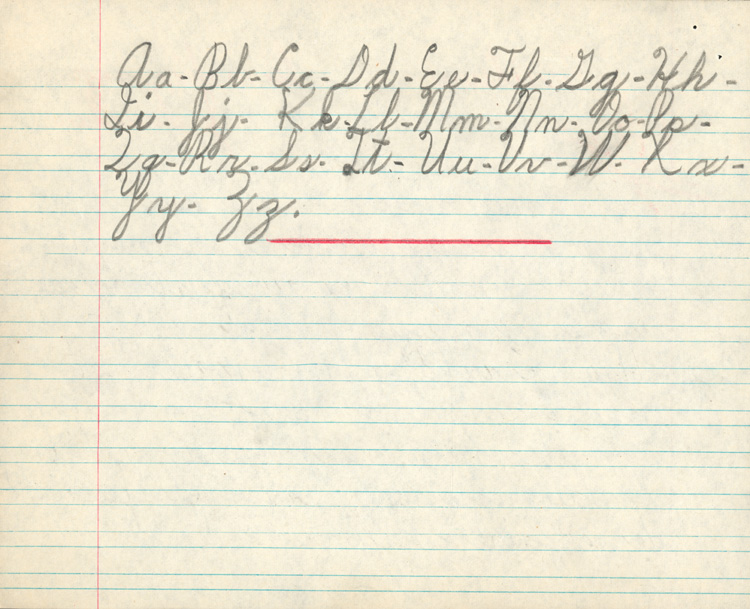 Aa - Bb - Cc - Dd - Ee - Ff - Gg - Hh -
Ii - Jj - Kk - Ll - Mm - Nn - Oo - Pp -
Qq - Rr - Ss - Tt - Uu - Vv - W - Xx -
Yy - Zz.